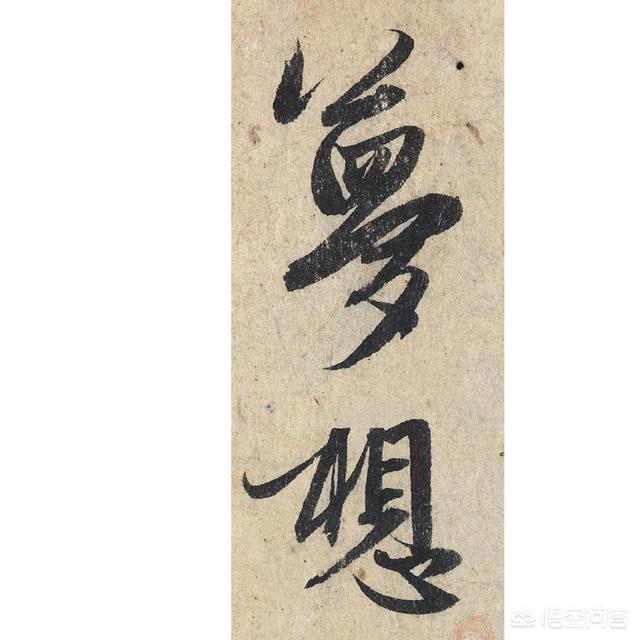 夢
想
悟空问答